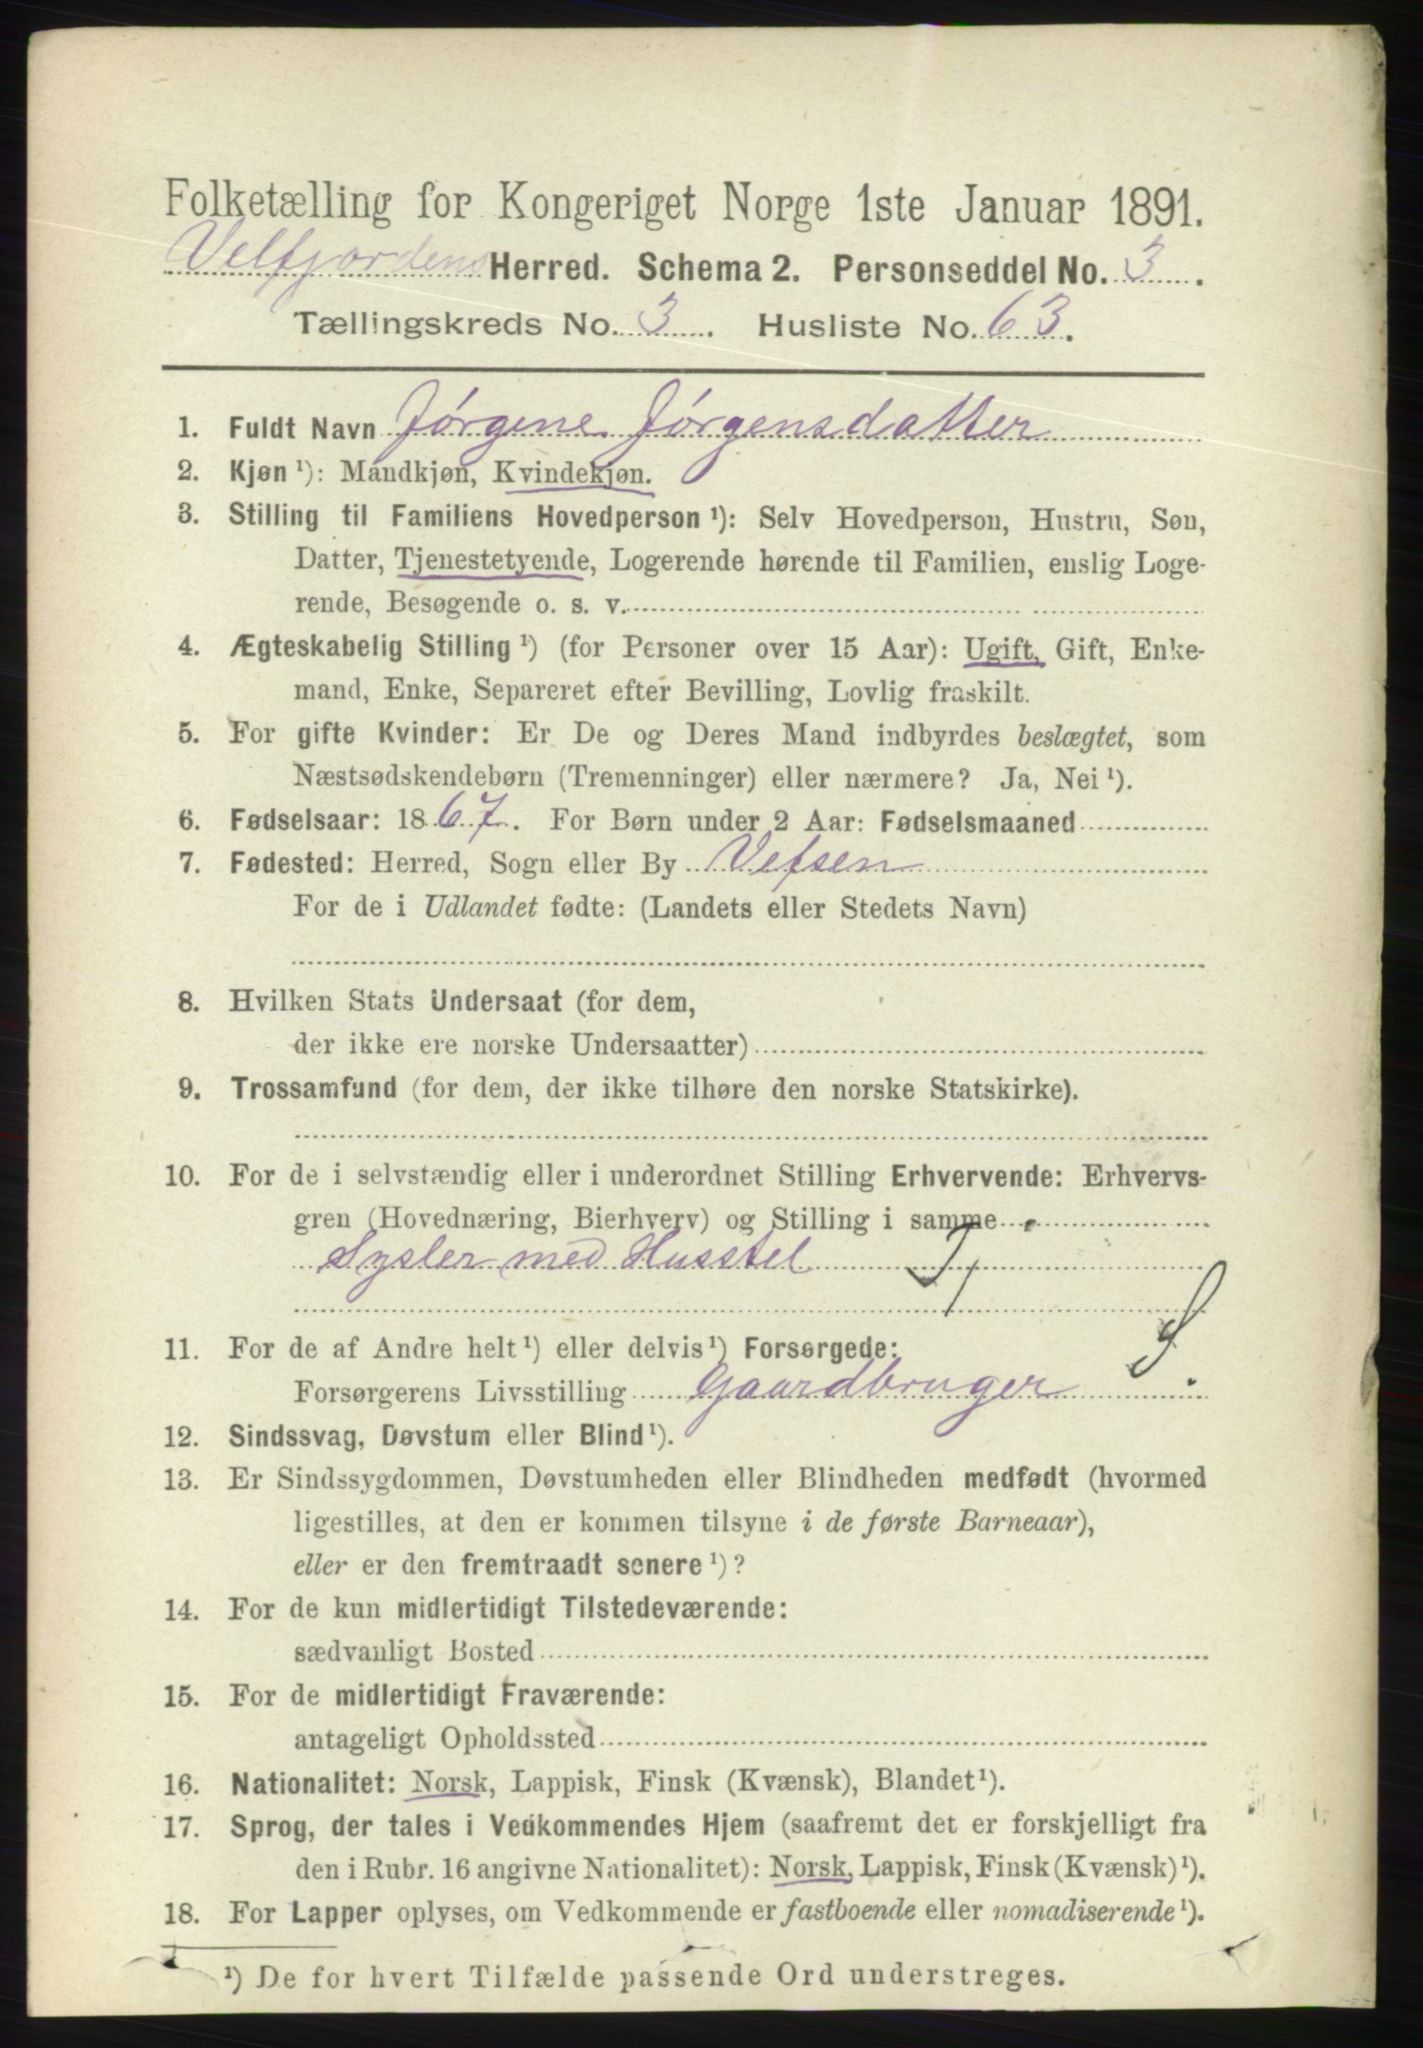 Folketælling for Kongeriget Norge 1ste Januar 1891.
Velfjordens Herred. Schema 2. Personseddel No. 3.
Tællingskreds No. 3. Husliste No. 63.
1. Fuldt Navn Jørgene Jørgensdatter
2. Kjøn ¹): Mandkjøn, Kvindekjøn.
3. Stilling til Familiens Hovedperson ¹): Selv Hovedperson, Hustru, Søn,
Datter, Tjenestetyende, Logerende hørende til Familien, enslig Loge-
rende, Besøgende o. s. v.
4. Ægteskabelig Stilling ¹) (for Personer over 15 Aar): Ugift, Gift, Enke-
mand, Enke, Separeret efter Bevilling, Lovlig fraskilt.
5. For gifte Kvinder: Er De og Deres Mand indbyrdes beslægtet, som
Næstsødskendebørn (Tremenninger) eller nærmere? Ja, Nei ¹).
6. Fødselsaar: 1867. For Børn under 2 Aar: Fødselsmaaned
7. Fødested: Herred, Sogn eller By Vefsen
For de i Udlandet fødte: (Landets eller Stedets Navn)
8. Hvilken Stats Undersaat (for dem,
der ikke ere norske Undersaatter)
9. Trossamfund (for dem, der ikke tilhøre den norske Statskirke).
10. For de i selvstændig eller i underordnet Stilling Erhvervende: Erhvervs-
gren (Hovednæring, Bierhverv) og Stilling i samme
Sysler med Husstel
11. For de af Andre helt ¹) eller delvis ¹) Forsørgede:
Forsørgerens Livsstilling Gaardbruger
12. Sindssvag, Døvstum eller Blind ¹).
13. Er Sindssygdommen, Døvstumheden eller Blindheden medfødt (hvormed
ligestilles, at den er kommen tilsyne i de første Barneaar),
eller er den fremtraadt senere ¹)?
14. For de kun midlertidigt Tilstedeværende:
sædvanligt Bosted
15. For de midlertidigt Fraværende:
antageligt Opholdssted
16. Nationalitet: Norsk, Lappisk, Finsk (Kvænsk), Blandet ¹).
17. Sprog, der tales i Vedkommendes Hjem (saafremt det er forskjelligt fra
den i Rubr. 16 angivne Nationalitet): Norsk, Lappisk, Finsk (Kvænsk) ¹).
18. For Lapper oplyses, om Vedkommende er fastboende eller nomadiserende ¹).
¹) De for hvert Tilfælde passende Ord understreges.